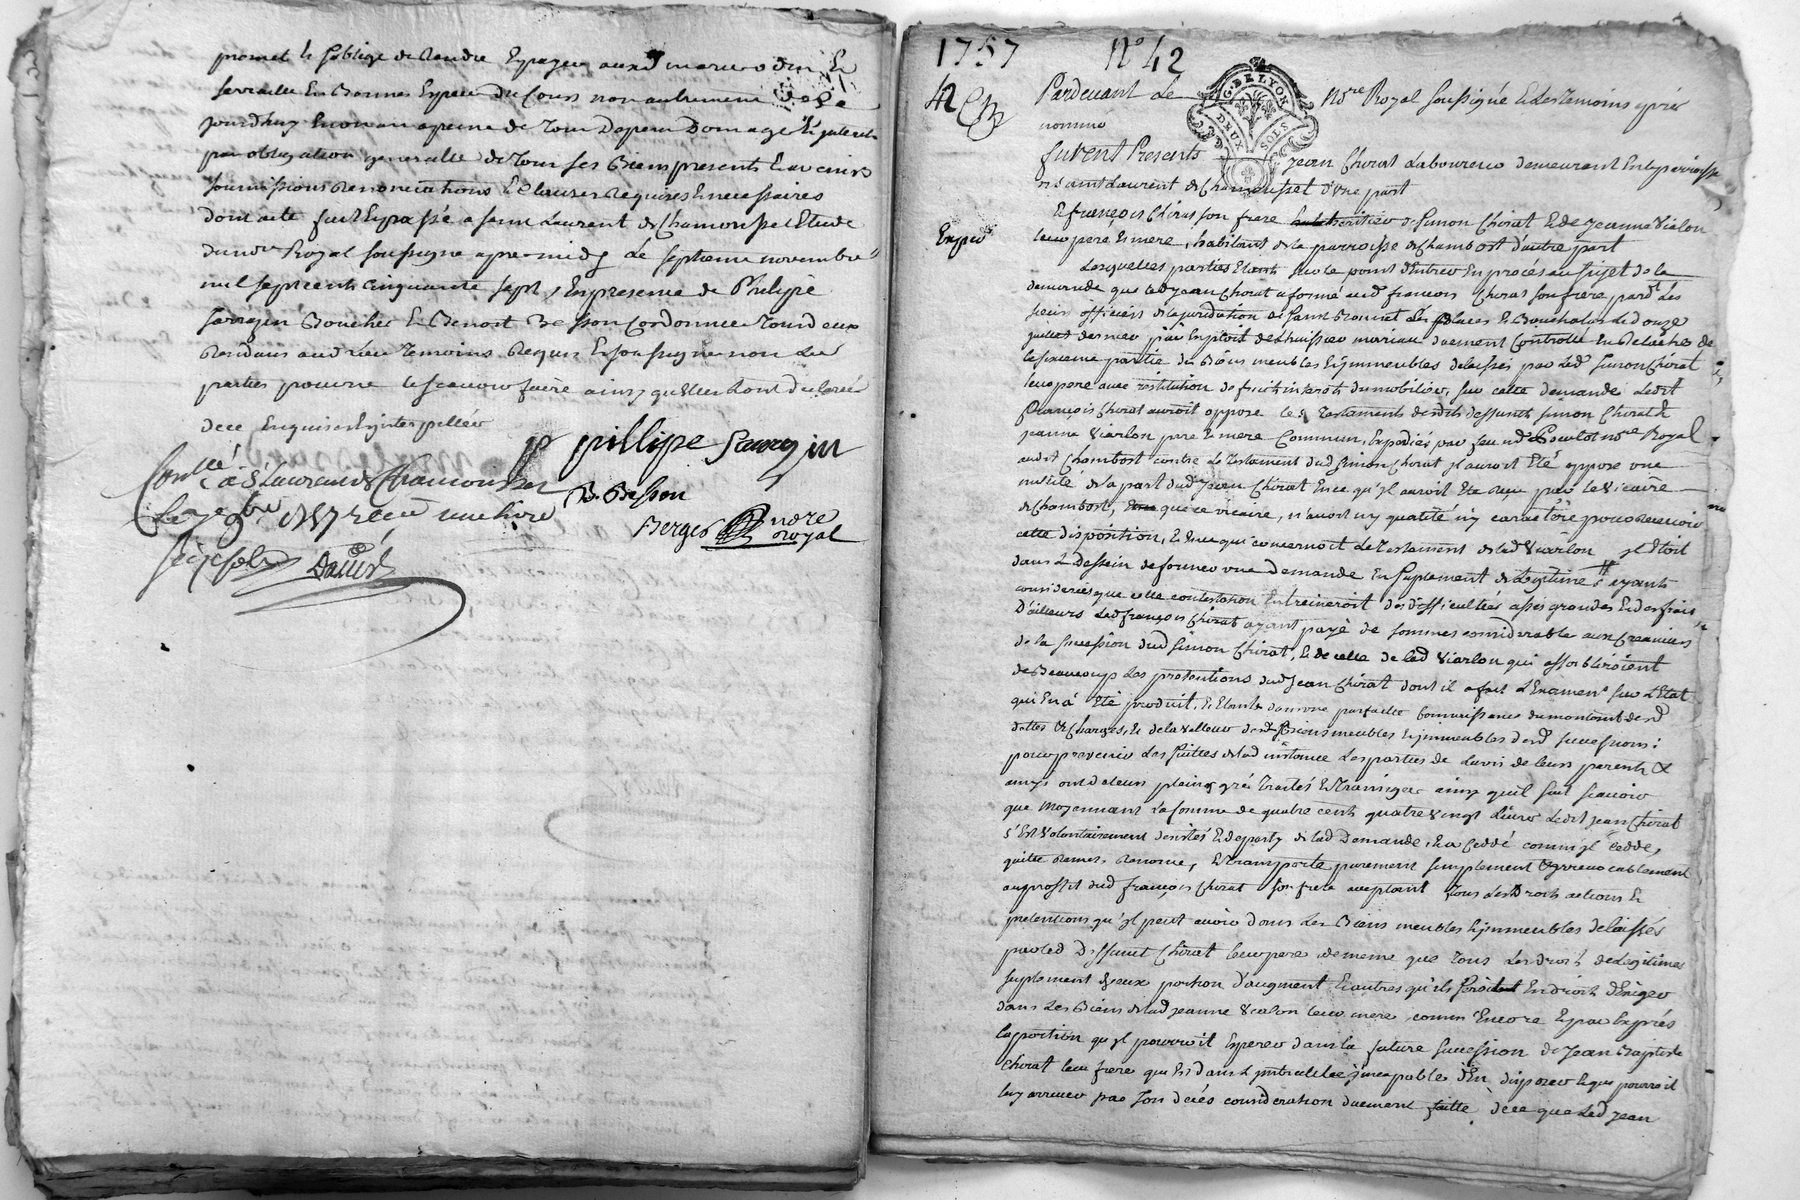 promet & s'oblige de rendre & payer auxd mariers
serraille en Bonnes Especes du Cours non autrement
jourdhuy en un an a peine de tous Depens Domage
par obligation generalle de tous ses Biens presents & avenirs
soumissions Renonciations & Clauses Requises & necessaires
dont acte fait & passé a saint Laurent de Chamousset Etude
du no.re Royal soussigne apres midy Le septieme novembre
mil sept cents cinquante sept, En presence de Philipe
sarragin Boucher & Benoit Besson Cordonnier tous deux
Residans aud Lieu temoins Requis & soussignes non les
parties pour ne le scavoir faire ainsy qu'elles L'ont declarée
de ce Enquises & interpellées
pillipe Saragin
B. Besson
Berger no.re Royal
Con.llé à S.t Laurent de Chamousset
Le 7e 9bre 1757 Recu une livre
Seize sols David
1757 N° 42
42
G. DE LYON
DEUX SOLS
Pardevant Le no.re Royal soussigné & les temoins apres
nommés
furent Presents Jean Chirat Laboureur demeurant En la parroisse
de saint Laurent de Chamousset d'une part
Exped
& françois Chirat son frere heritier de simon Chirat & de Jeanne Vialon
leur pere & mere, habitant de la parroisse de Chambost d'autre part
Lesquelles parties Etants sur le point d'Entrer En procés au sujet de la
demande que led Jean Chirat a formé aud francois Chirat son frere pard.t Les
sieurs officiers de la juridiction de saint Bonnet Les places
juillet dernier par Exploit de L'huissier duement Controllé En Relache de
la sixieme partie des Biens meubles & jmmeubles delaissés par Led simon Chirat
leur pere avec restitution de fruits interets du mobilier, sur cette demande Ledit
François Chirat auroit opposé les testaments desdits deffunts simon Chirat &
jeanne Viarlon pere & mere Communs, Expediés par feu no.re Royal
audit Chambost contre Le Testament dud simon Chirat jl auroit Eté opposé une
nullité de la part dud Jean Chirat En ce qu'jl auroit Eté Reçu par le Vicaire
de Chambost, que ce vicaire, n'avoit ny qualité ny caractere pour Recevoir
cette disposition, & En ce qui concernoit Le Testament de lad Viarlon jl Etoit
dans Le Dessein de former une Demande En suplement de Legitime, ayants
considerés que cette contestation Entreineroit des difficultées assés grandes & des frais,
D'ailleurs Led françois Chirat ayant payé de sommes considerable aux Creanciers
de la succession dud simon Chirat, & de celle de lad Viarlon qui affoibliroient
de Beaucoup Les pretentions dud Jean Chirat dont il a fait L'Examen sur L'Etat
qui En a Eté produit, & Etants dans une parfaitte Connaissance du montant desd
dettes & Charges & de la Valleur desd Biens meubles & jmmeubles desd successions:
pour prevenir Les suittes de lad instance Les parties de Lavis de leurs parents &
amys ont de leur plein gré Traités & Transiger ainsy quil suit scavoir
que moyennant la somme de quatre cents quatre vingt Livres Ledit Jean Chirat
s'est Volontairement desisté & departy de lad Demande, & a Ceddé comm'jl Cedde,
quitte Remet, Renonce, & transporte purement simplement & jrrevocablement
au proffit dud françois Chirat son frere acceptant tous Les Droits actions &
pretentions qu'jl peut avoir dans Les Biens meubles & jmmeubles delaissés
par led Deffunt Chirat leur pere de meme que tous Les droits de Legitimes
suplement d'jceux portion d'augment & autres qu'ils seroit En droit d'Exiger
dans Les Biens de lad Jeanne Vialon leur mere comm'Encore & par Exprés
la portion qu'jl pourroit Esperer dans la future succession de Jean Baptiste
Chirat leur frere qui Est dans L'imbecillité & jncapable d'En disposer & qui pourroit
luy arriver par son decés consideration duement faitte de ce que Led Jean